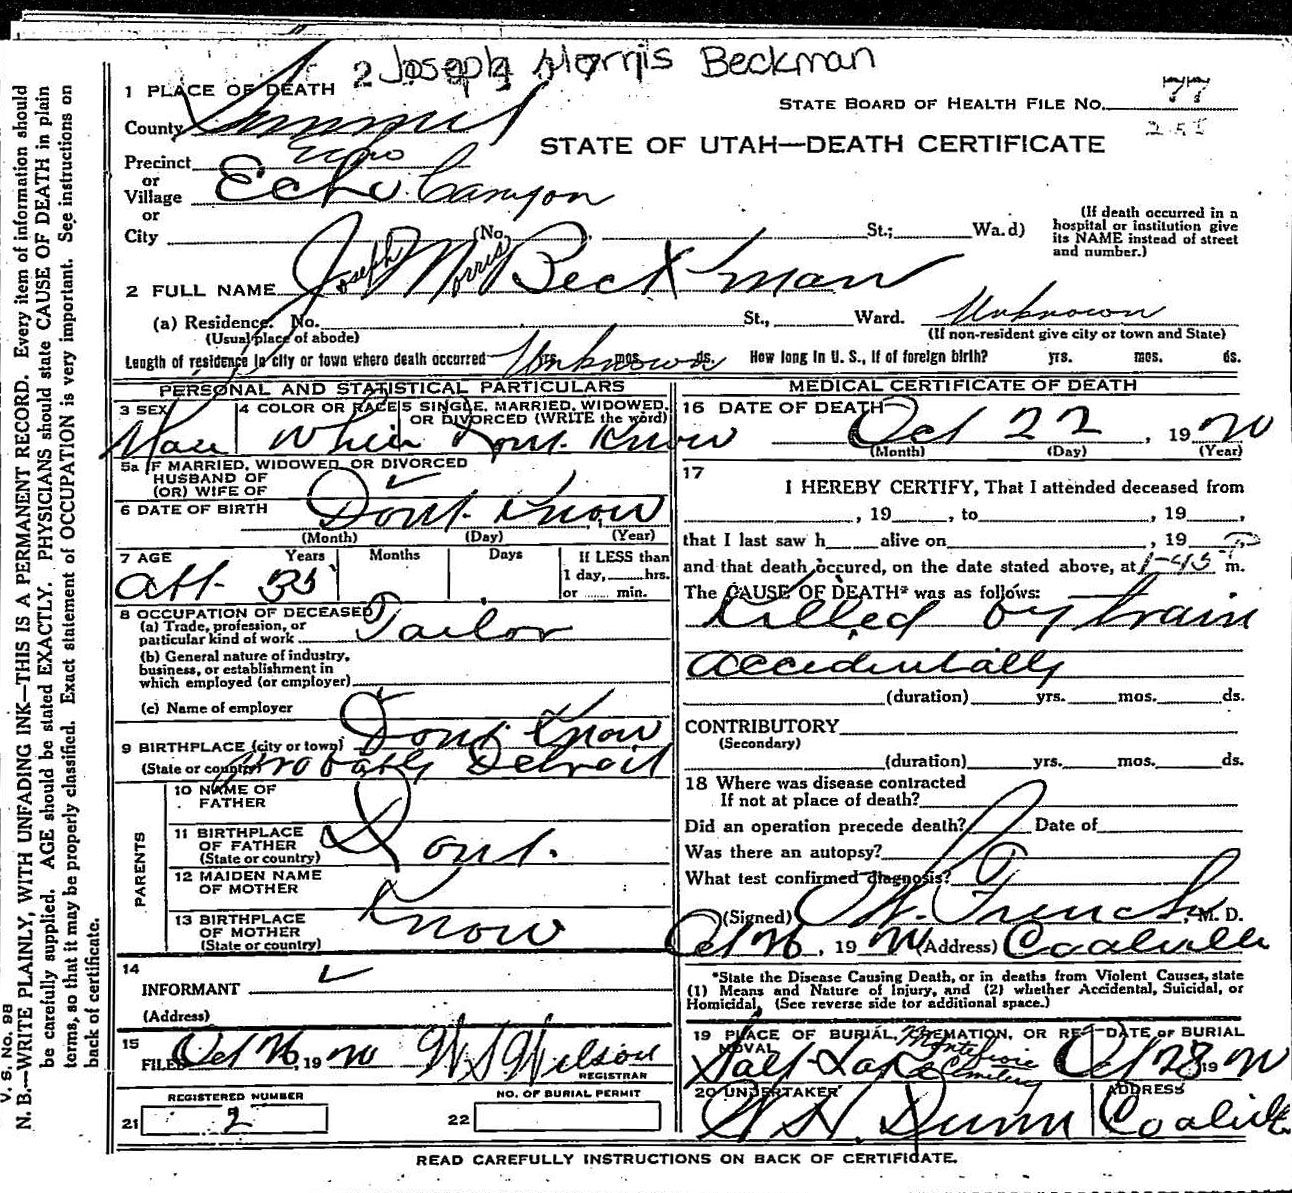 2 Joseph Morris Beckman
1 PLACE OF DEATH
STATE BOARD OF HEALTH FILE No. 77
County Summit
STATE OF UTAH—DEATH CERTIFICATE
Precinct Echo
or
Village Echo Canyon
or
City (No. St.; Wa.d)
(If death occurred in a hospital or institution give its NAME instead of street and number.)
2 FULL NAME J Joseph M Morris Beckman
(a) Residence. No. St., Ward. Unknown
(Usual place of abode) (If non-resident give city or town and State)
Length of residence in city or town where death occurred Unknown yrs. mos. ds. How long in U. S., if of foreign birth? yrs. mos. ds.
PERSONAL AND STATISTICAL PARTICULARS
3 SEX 4 COLOR OR RACE 5 SINGLE, MARRIED, WIDOWED, OR DIVORCED (WRITE the word)
Male White Dont Know
5a IF MARRIED, WIDOWED, OR DIVORCED
HUSBAND OF
(OR) WIFE OF
6 DATE OF BIRTH Dont Know
(Month) (Day) (Year)
7 AGE Years Months Days If LESS than
1 day, hrs.
or min.
35
8 OCCUPATION OF DECEASED
(a) Trade, profession, or
particular kind of work Tailor
(b) General nature of industry,
business, or establishment in
which employed (or employer)
(c) Name of employer
9 BIRTHPLACE (city or town) Dont Know
(State or country) Probably Detroit
PARENTS
10 NAME OF
FATHER
11 BIRTHPLACE
OF FATHER
(State or country) Dont
12 MAIDEN NAME
OF MOTHER
Know
13 BIRTHPLACE
OF MOTHER
(State or country)
14
INFORMANT
(Address)
15
FILED Oct 26, 1920 W S Wilson
REGISTRAR
REGISTERED NUMBER
21 2
NO. OF BURIAL PERMIT
22
MEDICAL CERTIFICATE OF DEATH
16 DATE OF DEATH
Oct 22, 1920
(Month) (Day) (Year)
17
I HEREBY CERTIFY, That I attended deceased from
, 19 , to , 19 ,
that I last saw h alive on , 19
and that death occured, on the date stated above, at 1-45 P m.
The CAUSE OF DEATH* was as follows:
Killed by train
accidentally
(duration) yrs. mos. ds.
CONTRIBUTORY
(Secondary)
(duration) yrs. mos. ds.
18 Where was disease contracted
If not at place of death?
Did an operation precede death? Date of
Was there an autopsy?
What test confirmed diagnosis?
(Signed) French, M. D.
Oct 26, 1920 (Address) Coalville
*State the Disease Causing Death, or in deaths from Violent Causes, state
(1) Means and Nature of Injury, and (2) whether Accidental, Suicidal, or
Homicidal. (See reverse side for additional space.)
19 PLACE OF BURIAL, CREMATION, OR REMOVAL DATE OF BURIAL
Salt Lake Montefiore Cemetery Oct 28 1920
20 UNDERTAKER ADDRESS
W H Dunn Coalville
READ CAREFULLY INSTRUCTIONS ON BACK OF CERTIFICATE.
V. S. No. 98
N. B.—WRITE PLAINLY, WITH UNFADING INK—THIS IS A PERMANENT RECORD. Every item of information should
be carefully supplied. AGE should be stated EXACTLY. PHYSICIANS should state CAUSE OF DEATH in plain
terms, so that it may be properly classified. Exact statement of OCCUPATION is very important. See instructions on
back of certificate.